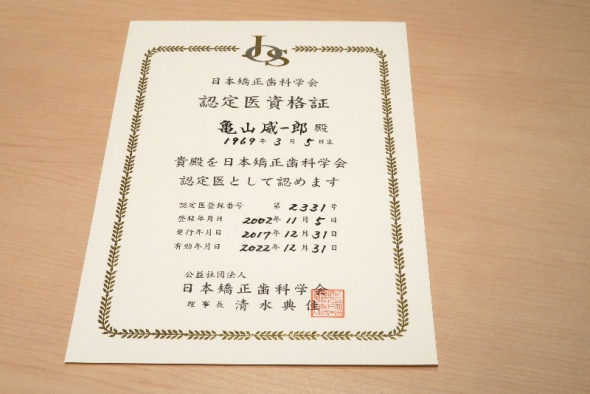 JOS
日本矯正歯科学会
認定医資格証
亀山威一郎 殿
1969年 3月 5日生
貴殿を日本矯正歯科学会
認定医として認めます
認定医登録番号 第 2331号
登録年月日 2002年 11月 5日
発行年月日 2017年 12月 31日
有効年月日 2022年 12月 31日
公益社団法人
日本矯正歯科学会
理事長 清水典佳